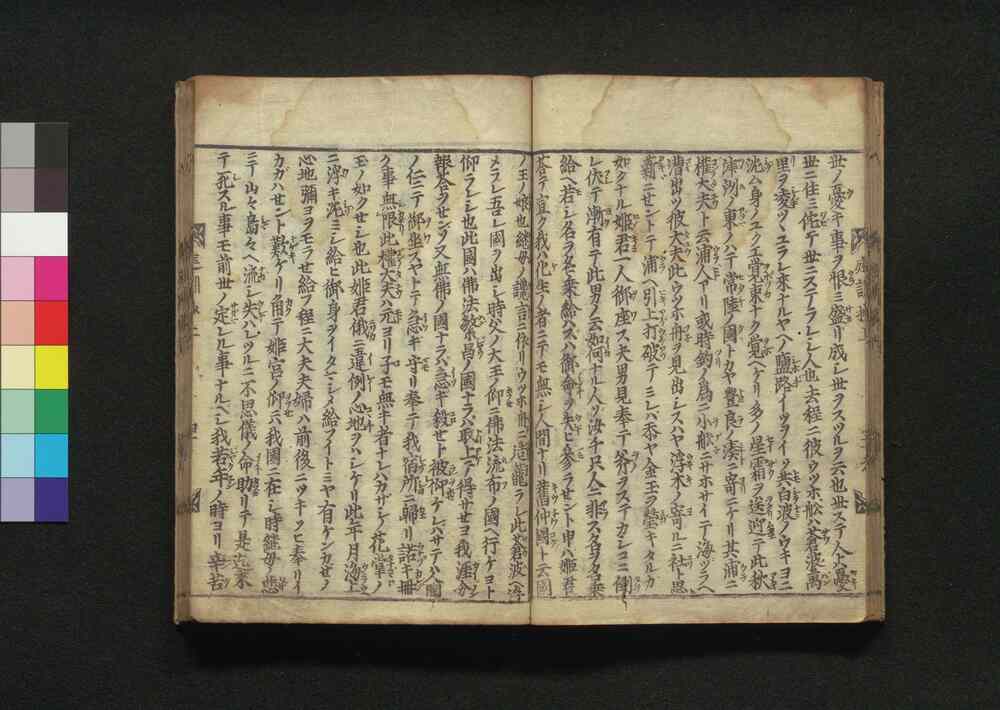 世ノ憂キ事ヲ恨ミ盛リ成シ世ヲスツルヲ云也世ステ人ハ憂
世ニ住ミ侘テ世ニステラレシ人也去程ニ彼ウツホ舩ハ蒼波萬
里ヲ凌ツヽユラレ来ナルヤヘノ鹽路イツヲイツ共白波ノウキヨニ
沈ム身ノユクエ覚束ナク覚ヘケリ多ノ星霜ヲ送迎テ此秋
津洲ノ東ノハテ常陸ノ國トカヤ豊良ノ湊ニ寄ニケリ其浦ニ
權大夫ト云浦人アリ或時釣ノ為ニ小舩ニサホサイテ海ヅラヘ
漕出ツ彼大夫此ウツホ舟ヲ見出シスハヤ浮木ノ寄ルニ社ト思
薪ニセントテ浦ヘ引上打破テミレハ忝ヤ金玉ヲ瑩キタルカ
如クナル姫君一人御座ス夫男見奉テ斧ヲステカシコニ倒
レ伏テ漸有テ此男ノ云如何ナル人ソ海千只人ニ非ス名ヲ名乗
給ヘ若シ名ヲ名乗給ハズハ御命ヲ失ヒ参ラセント申ハ姫君
答テ宣ク我ハ化生ノ者ニテモ無シ人間ナリ舊仲國ト云國
ノ王ノ娘也継母ノ讒言ニ依リウツホ舟ニ造籠ラレ此蒼波ヘ浮
メラレ吾レ國ヲ出シ時父ノ大王ノ仰ニ佛法流布ノ國ヘ行ケヨト
仰ラレシ也此國ハ佛法繁昌ノ國ナラバ取上ケ得サセヨ我涯分
報答ヲセンゾ又無佛ノ國ナラハ急キ殺セト被仰ケレバサテハ國
ノ仁ニテ御坐スヤトテ急キ守リ奉テ我宿所ニ歸リ諾キ冊
ク事無限此權大夫ハ元ヨリ子モ無キ者ナレバカサシノ花掌ノ
モノ如クセシ也此姫君俄ニ違例ノ心地ヲハシケリ此年月波ノ上
ニ浮キ沈ミシ給ヒ御身ヲイタシメ給フイトミヤ有ケンカゼノ
心地彌ヨヲモラセ給フ程ニ大夫夫婦ハ前後ニツキソヒ奉リイ
カガハせント歎ケリ角テ姫宮ノ仰ニハ我國ニ在シ時継母ノ悪
ミニテ山々島々ヘ流シ失ハレツルニ不思儀ノ命助リテ是迄来
テ死スル事モ前世ノ定レル事ナルヘシ我若年ノ時ヨリ辛苦